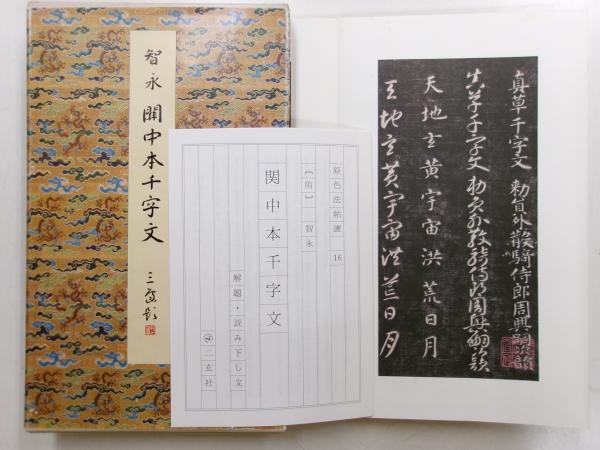 智永 關中本千字文
原色法帖選 16
〔隋〕 智永
関中本千字文
解題・読み下し文
二玄社
真草千字文 勅員外散騎侍郎周興嗣次韻
真草千字文 勅員外散騎侍郎周興嗣次韻
天地玄黄宇宙洪荒日月
天地玄黄宇宙洪荒日月